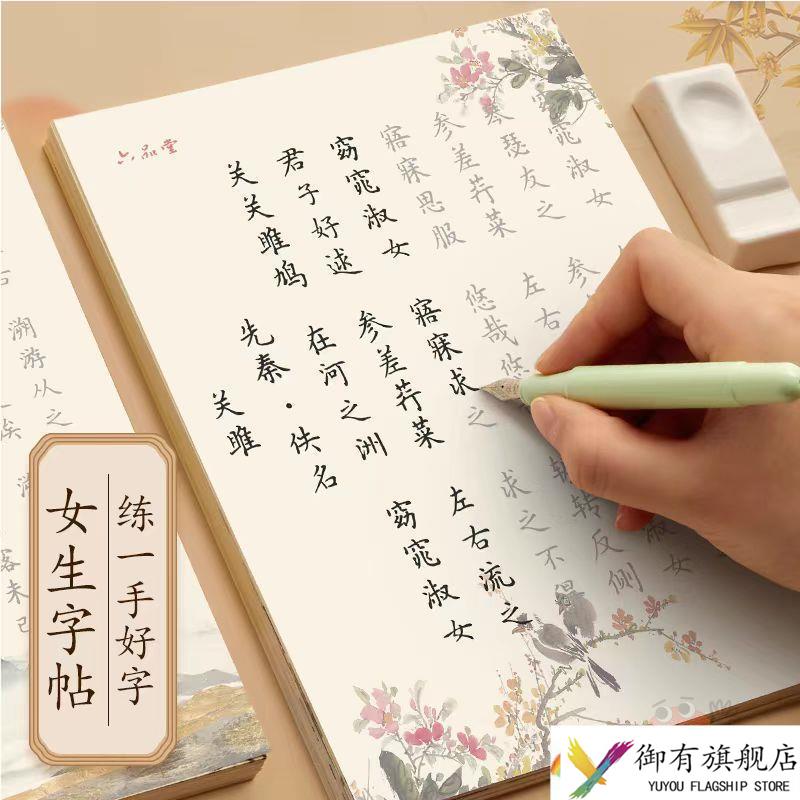 六品堂
关雎
先秦·佚名
关关雎鸠
在河之洲
窈窕淑女
君子好逑
参差荇菜
左右流之
窈窕淑女
寤寐求之
求之不得
寤寐思服
悠哉悠
转反侧
参差荇菜
左右
淑女
琴瑟友之
参
窈窕淑女
溯游从之
未已
练一手好字
女生字帖
御有旗舰店
YUYOU FLAGSHIP STORE